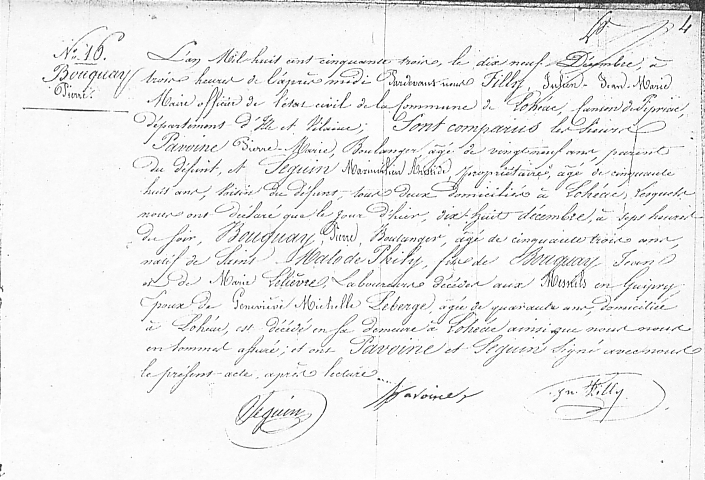 4
N° 16.
Bouquay
Pierre.
L'an Mil huit cent cinquante trois, le dix neuf Décembre, à
trois heures de l'après midi Pardevant nous Filly, Julien-Jean-Marie
Maire officier de l'état civil de la Commune de Lohéac, Canton de Pipriac,
département d'Ille et Vilaine; Sont comparus les Sieurs
Pavoine Pierre-Marie, Boulanger, âgé de vingt neuf ans, parent
du défunt, et Seguin Maximilien, propriétaire, âgé de cinquante
huit ans, voisin du défunt, tous deux domiciliés à Lohéac, lesquels
nous ont déclaré que le jour d'hier, dix huit décembre, à sept heures
du soir, Bouquay, Pierre, Boulanger, âgé de cinquante trois ans,
natif de Saint Malo de Phily, fils de Bouquay Jean
et de Marie Lelièvre, Laboureurs décédés aux Mesnils en Guipry
Epoux de Geneviève Michelle Leberge, âgée de quarante ans, domiciliée
à Lohéac, est décédé en sa demeure à Lohéac ainsi que nous nous
en sommes assuré; et ont Pavoine et Seguin signé avec nous
le présent acte, après lecture.
Seguin
Pavoine
Jn Filly